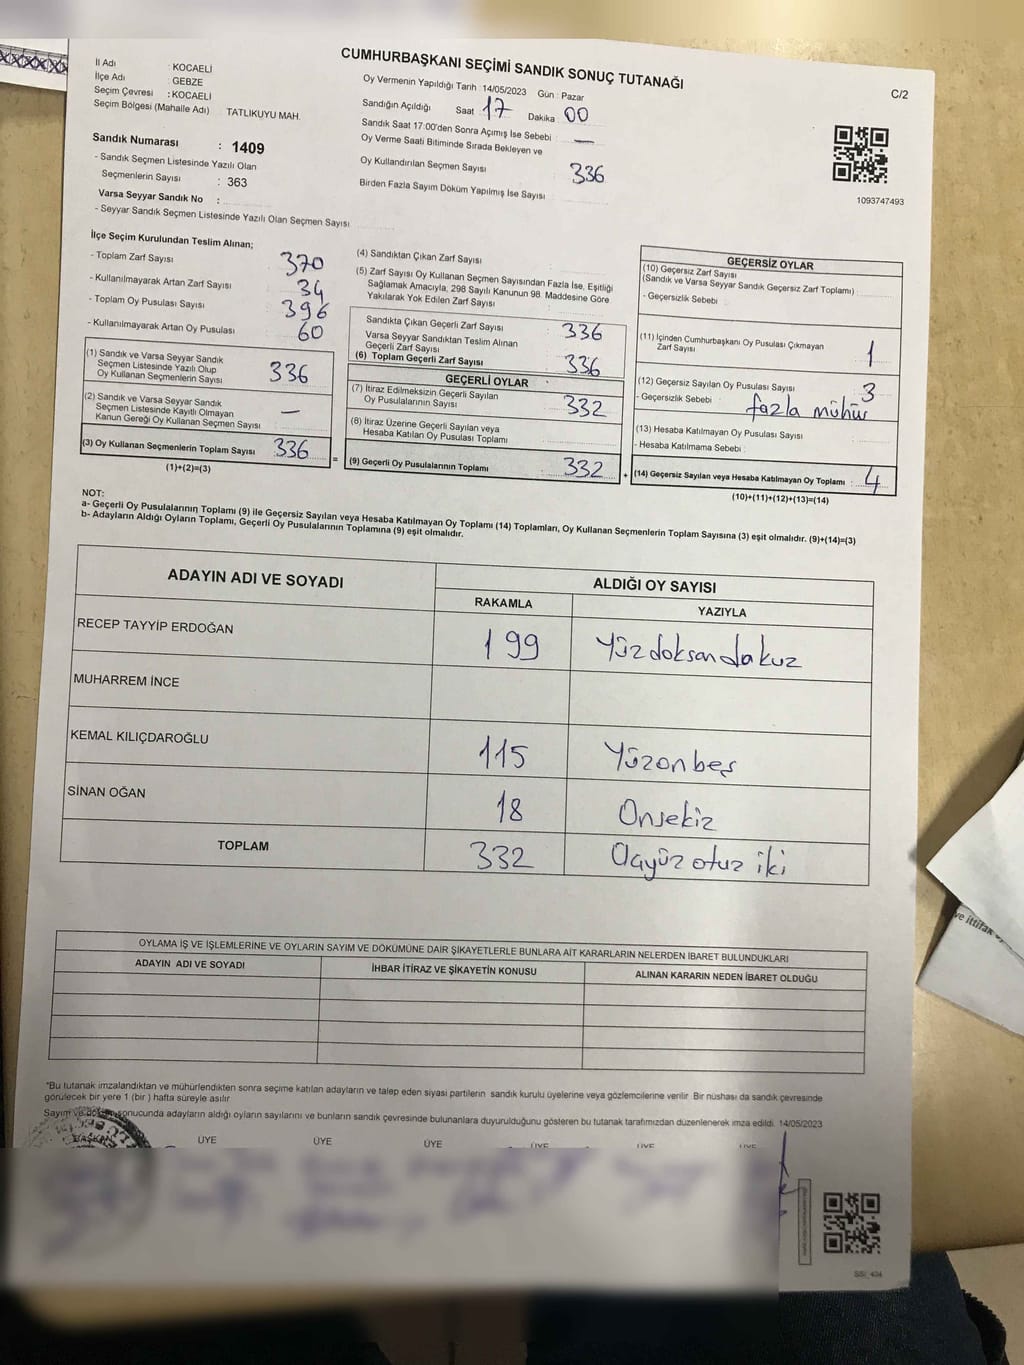 CUMHURBAŞKANI SEÇİMİ SANDIK SONUÇ TUTANAĞI
C/2
İl Adı : KOCAELİ
İlçe Adı : GEBZE
Seçim Çevresi : KOCAELİ
Seçim Bölgesi (Mahalle Adı) TATLIKUYU MAH.
Sandık Numarası : 1409
- Sandık Seçmen Listesinde Yazılı Olan
Seçmenlerin Sayısı : 363
Varsa Seyyar Sandık No :
- Seyyar Sandık Seçmen Listesinde Yazılı Olan Seçmen Sayısı
Oy Vermenin Yapıldığı Tarih : 14/05/2023 Gün : Pazar
Sandığın Açıldığı Saat 17 Dakika 00
Sandık Saat 17:00'den Sonra Açımış İse Sebebi : —
Oy Verme Saati Bitiminde Sırada Bekleyen ve
Oy Kullandırılan Seçmen Sayısı 336
Birden Fazla Sayım Döküm Yapılmış İse Sayısı
1093747493
İlçe Seçim Kurulundan Teslim Alınan;
- Toplam Zarf Sayısı 370
- Kullanılmayarak Artan Zarf Sayısı 34
- Toplam Oy Pusulası Sayısı 396
- Kullanılmayarak Artan Oy Pusulası 60
(1) Sandık ve Varsa Seyyar Sandık
Seçmen Listesinde Yazılı Olup
Oy Kullanan Seçmenlerin Sayısı 336
(2) Sandık ve Varsa Seyyar Sandık
Seçmen Listesinde Kayıtlı Olmayan
Kanun Gereği Oy Kullanan Seçmen Sayısı —
(3) Oy Kullanan Seçmenlerin Toplam Sayısı 336
(1)+(2)=(3)
=
(4) Sandıktan Çıkan Zarf Sayısı
(5) Zarf Sayısı Oy Kullanan Seçmen Sayısından Fazla İse, Eşitliği
Sağlamak Amacıyla, 298 Sayılı Kanunun 98. Maddesine Göre
Yakılarak Yok Edilen Zarf Sayısı :
Sandıkta Çıkan Geçerli Zarf Sayısı 336
Varsa Seyyar Sandıktan Teslim Alınan
Geçerli Zarf Sayısı
(6) Toplam Geçerli Zarf Sayısı 336
GEÇERLİ OYLAR
(7) İtiraz Edilmeksizin Geçerli Sayılan
Oy Pusulalarının Sayısı 332
(8) İtiraz Üzerine Geçerli Sayılan veya
Hesaba Katılan Oy Pusulası Toplamı
(9) Geçerli Oy Pusulalarının Toplamı : 332
+
GEÇERSİZ OYLAR
(10) Geçersiz Zarf Sayısı
(Sandık ve Varsa Seyyar Sandık Geçersiz Zarf Toplamı) :
- Geçersizlik Sebebi :
(11) İçinden Cumhurbaşkanı Oy Pusulası Çıkmayan
Zarf Sayısı 1
(12) Geçersiz Sayılan Oy Pusulası Sayısı 3
- Geçersizlik Sebebi : fazla mühür
(13) Hesaba Katılmayan Oy Pusulası Sayısı
- Hesaba Katılmama Sebebi :
(14) Geçersiz Sayılan veya Hesaba Katılmayan Oy Toplamı : 4
(10)+(11)+(12)+(13)=(14)
NOT:
a- Geçerli Oy Pusulalarının Toplamı (9) ile Geçersiz Sayılan veya Hesaba Katılmayan Oy Toplamı (14) Toplamları, Oy Kullanan Seçmenlerin Toplam Sayısına (3) eşit olmalıdır. (9)+(14)=(3)
b- Adayların Aldığı Oyların Toplamı, Geçerli Oy Pusulalarının Toplamına (9) eşit olmalıdır.
ADAYIN ADI VE SOYADI
ALDIĞI OY SAYISI
RAKAMLA YAZIYLA
RECEP TAYYİP ERDOĞAN 199 Yüzdoksandokuz
MUHARREM İNCE
KEMAL KILIÇDAROĞLU 115 Yüzonbeş
SİNAN OĞAN 18 Onsekiz
TOPLAM 332 Üçyüz otuz iki
OYLAMA İŞ VE İŞLEMLERİNE VE OYLARIN SAYIM VE DÖKÜMÜNE DAİR ŞİKAYETLERLE BUNLARA AİT KARARLARIN NELERDEN İBARET BULUNDUKLARI
ADAYIN ADI VE SOYADI İHBAR İTİRAZ VE ŞİKAYETİN KONUSU ALINAN KARARIN NEDEN İBARET OLDUĞU
ve ittifak
*Bu tutanak imzalandıktan ve mühürlendikten sonra seçime katılan adayların ve talep eden siyasi partilerin sandık kurulu üyelerine veya gözlemcilerine verilir. Bir nüshası da sandık çevresinde
görülecek bir yere 1 (bir ) hafta süreyle asılır
Sayım ve sonucunda adayların aldığı oyların sayılarını ve bunların sandık çevresinde bulunanlara duyurulduğunu gösteren bu tutanak tarafımızdan düzenlenerek imza edildi. 14/05/2023
BAŞKAN ÜYE ÜYE ÜYE ÜYE ÜYE ÜYE